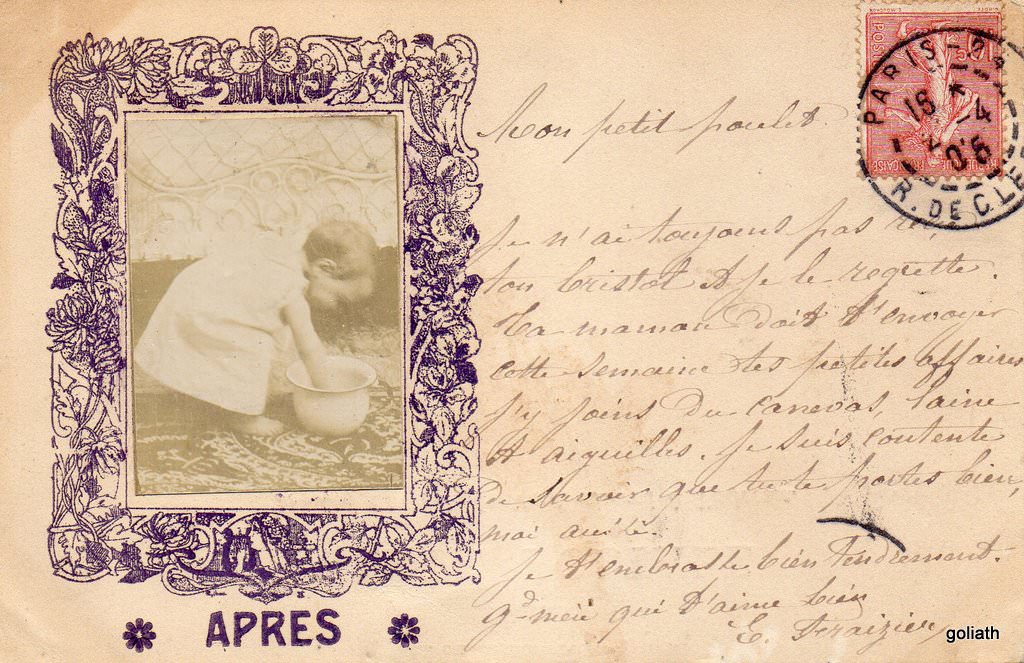 Mon petit poulet.
Je n'ai toujours pas
ton bristol & je le regrette.
Ta maman doit t'envoyer
cette semaine tes petites affaires
j'y joins du canevas, laine
& aiguilles. Je suis contente
de savoir que tu te portes bien,
moi aussi.
Je t'embrasse bien tendrement.
gd-mère qui t'aime bien
E. Fraizier
APRES
PARIS
16
4
06
R. DE CLE
POST
FRANÇAISE
goliath